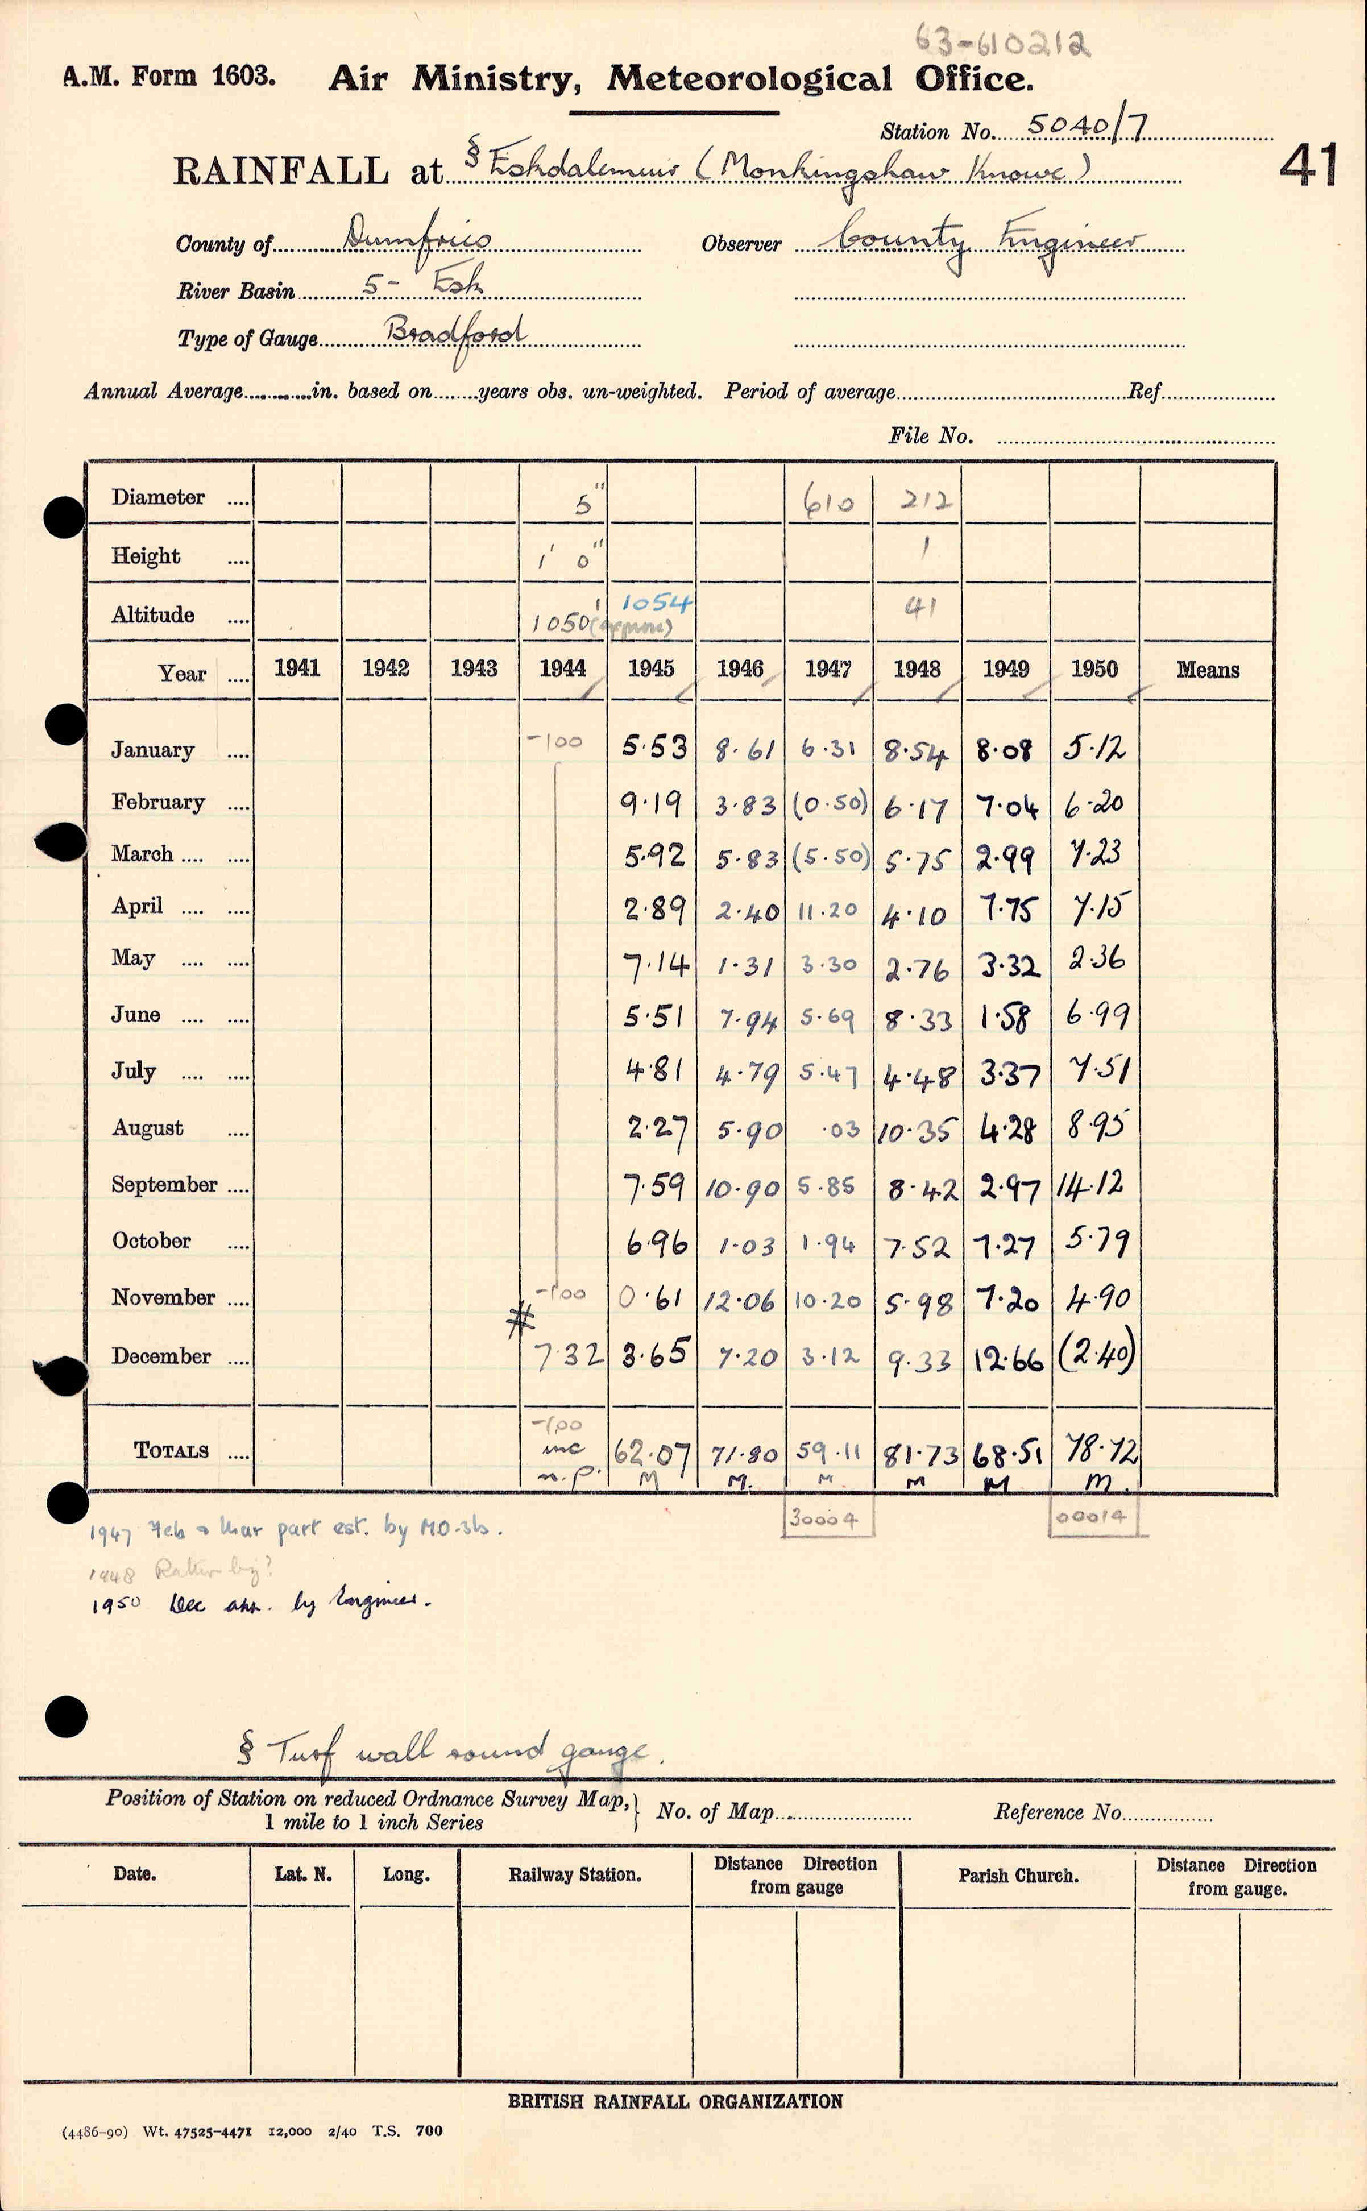 63-610212
A.M. Form 1603. Air Ministry, Meteorological Office.
Station No. 5040/7
RAINFALL at § Eskdalemuir (Monkingshaw Knowe) 41
County of Dumfries Observer County Engineer
River Basin 5- Esk
Type of Gauge Bradford
Annual Average in. based on years obs. un-weighted. Period of average Ref.
File No.
Diameter 5" 610 212
Height 1' 0" 1
Altitude 1050' (approx) 1054 41
Year 1941 1942 1943 1944 1945 1946 1947 1948 1949 1950 Means
January -100 5.53 8.61 6.31 8.54 8.08 5.12
February 9.19 3.83 (0.50) 6.17 7.04 6.20
March 5.92 5.83 (5.50) 5.75 2.99 7.23
April 2.89 2.40 11.20 4.10 7.75 7.15
May 7.14 1.31 3.30 2.76 3.32 2.36
June 5.51 7.94 5.69 8.33 1.58 6.99
July 4.81 4.79 5.47 4.48 3.37 7.51
August 2.27 5.90 .03 10.35 4.28 8.95
September 7.59 10.90 5.85 8.42 2.97 14.12
October 6.96 1.03 1.94 7.52 7.27 5.79
November -100 0.61 12.06 10.20 5.98 7.20 4.90
# December 7.32 3.65 7.20 3.12 9.33 12.66 (2.40)
-100
TOTALS inc 62.07 71.80 59.11 81.73 68.51 78.72
n.p. M M. M. M M M.
30004 00014
1947 Feb & Mar part est. by MO.3b.
1948 Rather big?
1950 Dec by Engineer.
§ Turf wall round gauge.
Position of Station on reduced Ordnance Survey Map, 1 mile to 1 inch Series } No. of Map Reference No.
Date. Lat. N. Long. Railway Station. Distance Direction from gauge Parish Church. Distance Direction from gauge.
BRITISH RAINFALL ORGANIZATION
(4486-90) Wt. 47525-4471 12,000 2/40 T.S. 700